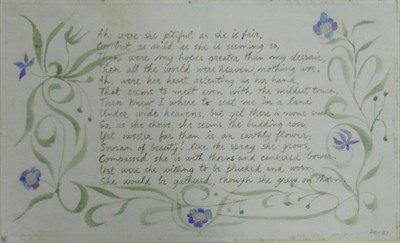 Ah, were she pitiful as she is fair,
Or but as mild as she is seeming so,
Then were my hopes greater than my despair,
Then all the world were heaven, nothing woe.
Ah, were her heart relenting as her hand,
That seems to melt even with the mildest touch,
Then knew I where to seat me in a land
Under wide heavens, but yet there is none such.
So, as she shows, she seems the budding rose,
Yet sweeter far than is an earthly flower;
Sovran of beauty! like the spray she grows,
Compassed she is with thorns and cankered bower.
Yet were she willing to be plucked and worn,
She would be gathered, though she grew on thorn.